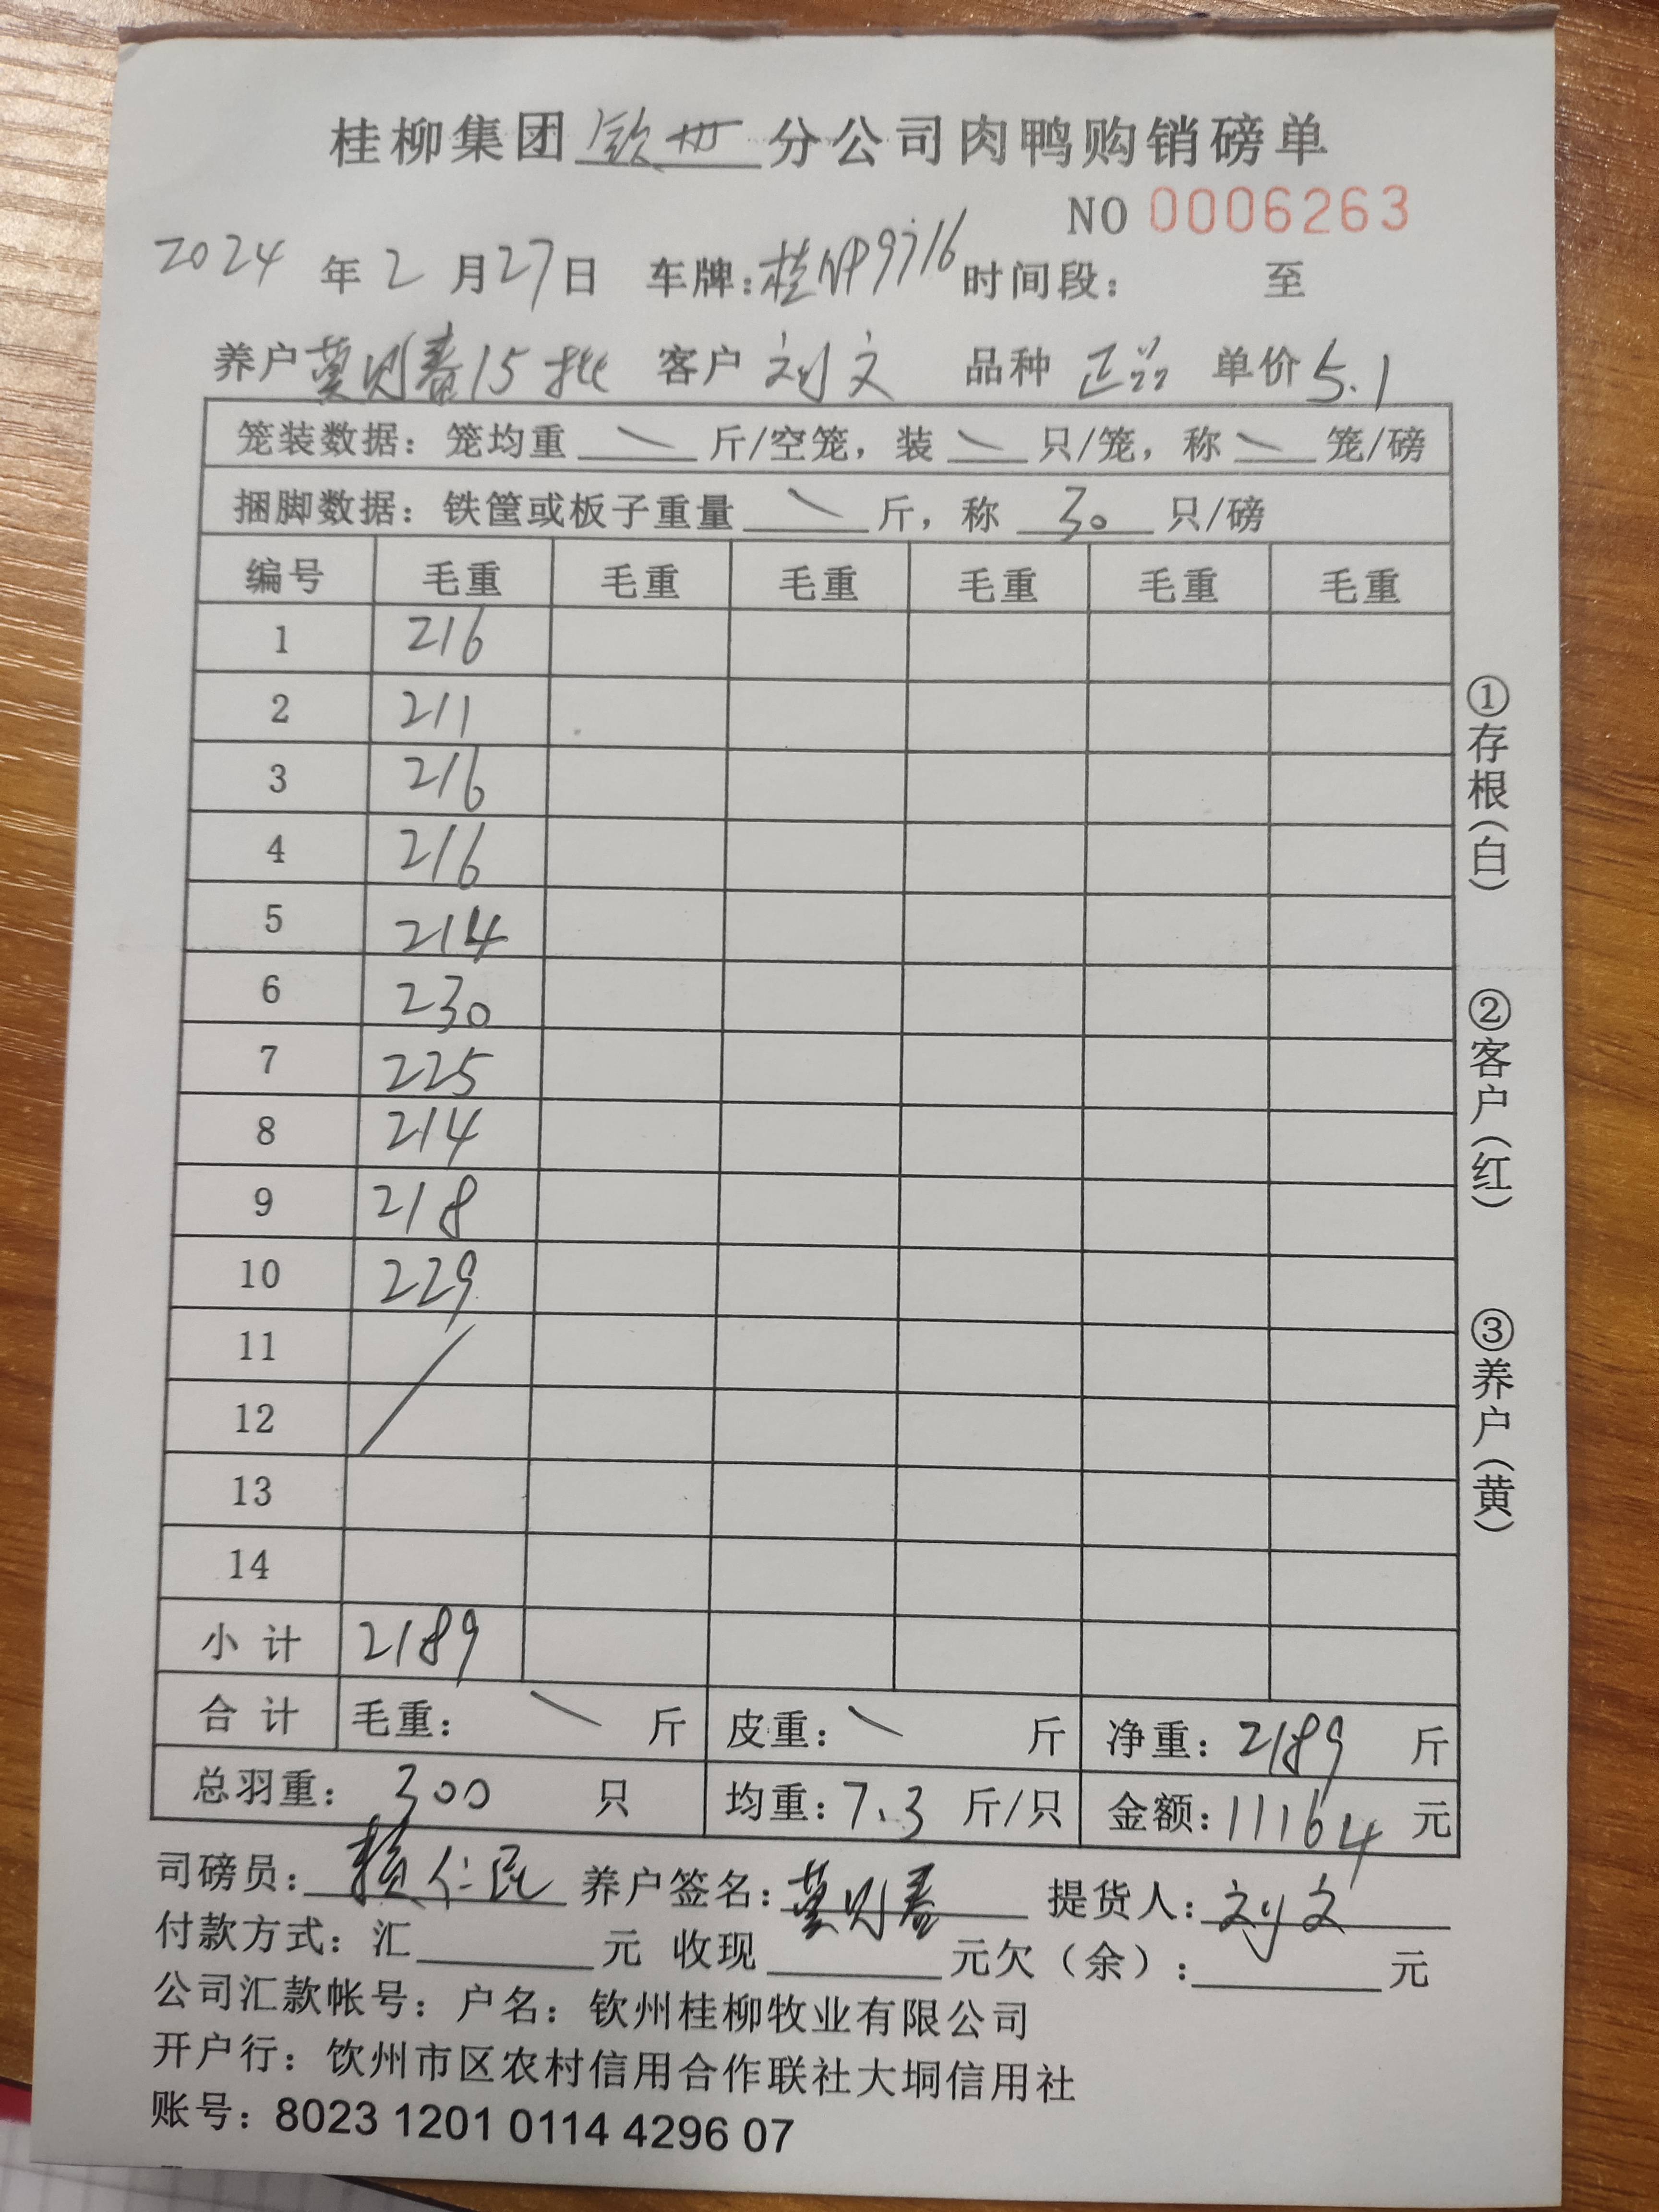 桂柳集团 钦州 分公司肉鸭购销磅单
NO 0006263
2024 年 2 月 27 日 车牌:桂NP9716 时间段: 至
养户 莫则春15批 客户 刘文 品种 正品 单价 5.1
笼装数据: 笼均重 \ 斤/空笼, 装 \ 只/笼, 称 \ 笼/磅
捆脚数据: 铁筐或板子重量 \ 斤, 称 30 只/磅
编号 毛重 毛重 毛重 毛重 毛重 毛重
1 216
2 211
3 216
4 216
5 214
6 230
7 225
8 214
9 218
10 229
11 /
12
13
14
小 计 2189
合 计 毛重: \ 斤 皮重: \ 斤 净重: 2189 斤
总羽重: 300 只 均重: 7.3 斤/只 金额: 11164 元
司磅员: 赖仁昆 养户签名: 莫则春 提货人: 刘文
付款方式: 汇 元 收现 元欠(余): 元
公司汇款帐号: 户名: 钦州桂柳牧业有限公司
开户行: 饮州市区农村信用合作联社大垌信用社
账号: 8023 1201 0114 4296 07
①存根(白)
②客户(红)
③养户(黄)